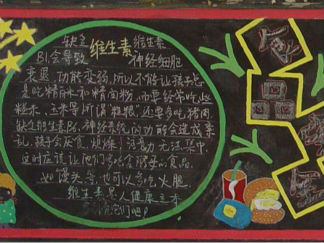 缺乏维生素 维生素
B1会导致 神经细胞
衰退,功能变弱,所以不能让孩子总
是吃精米和精面粉,而要经常吃些
粗米、玉米等所谓“粗粮”,还要多吃猪肉
缺乏维生素B6,神经系统的功能会造成紊
乱,孩子会厌食、烦燥、注意力无法集中,
这时应该让他们多吃含酵母的食品,
如馒头等,也可以多吃火腿.
维生素是人健康之本